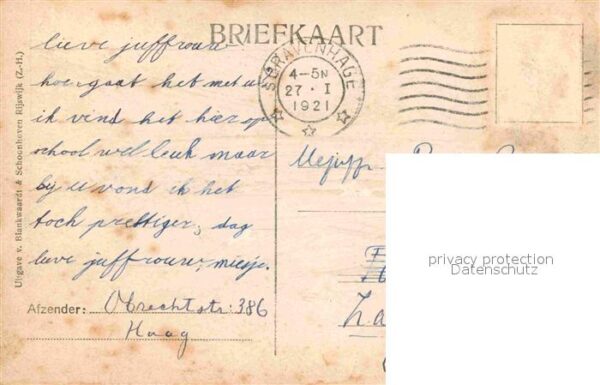 BRIEFKAART
lieve juffrouw
hoe gaat het met u
ik vind het hier op
school wel leuk maar
bij u vond ik het
toch prettiger, dag
lieve juffrouw, miesje.
Afzender: Obrechtstr: 386
Haag
Uitgave v. Blankwaardt & Schoonhoven Rijswijk (Z.-H.)
'S GRAVENHAGE
4-5N
27 · I
1921
Mejuff.
privacy protection
Datenschutz